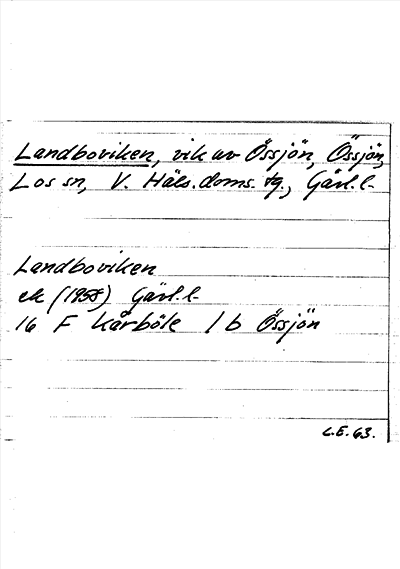 Landboviken, vik av Össjön, Össjön,
Los sn, V. Häls. doms. tg., Gävl. l-
Landboviken
ek (1958) Gävl. l-
16 F Kårböle 1 b Össjön
L.E. 63.